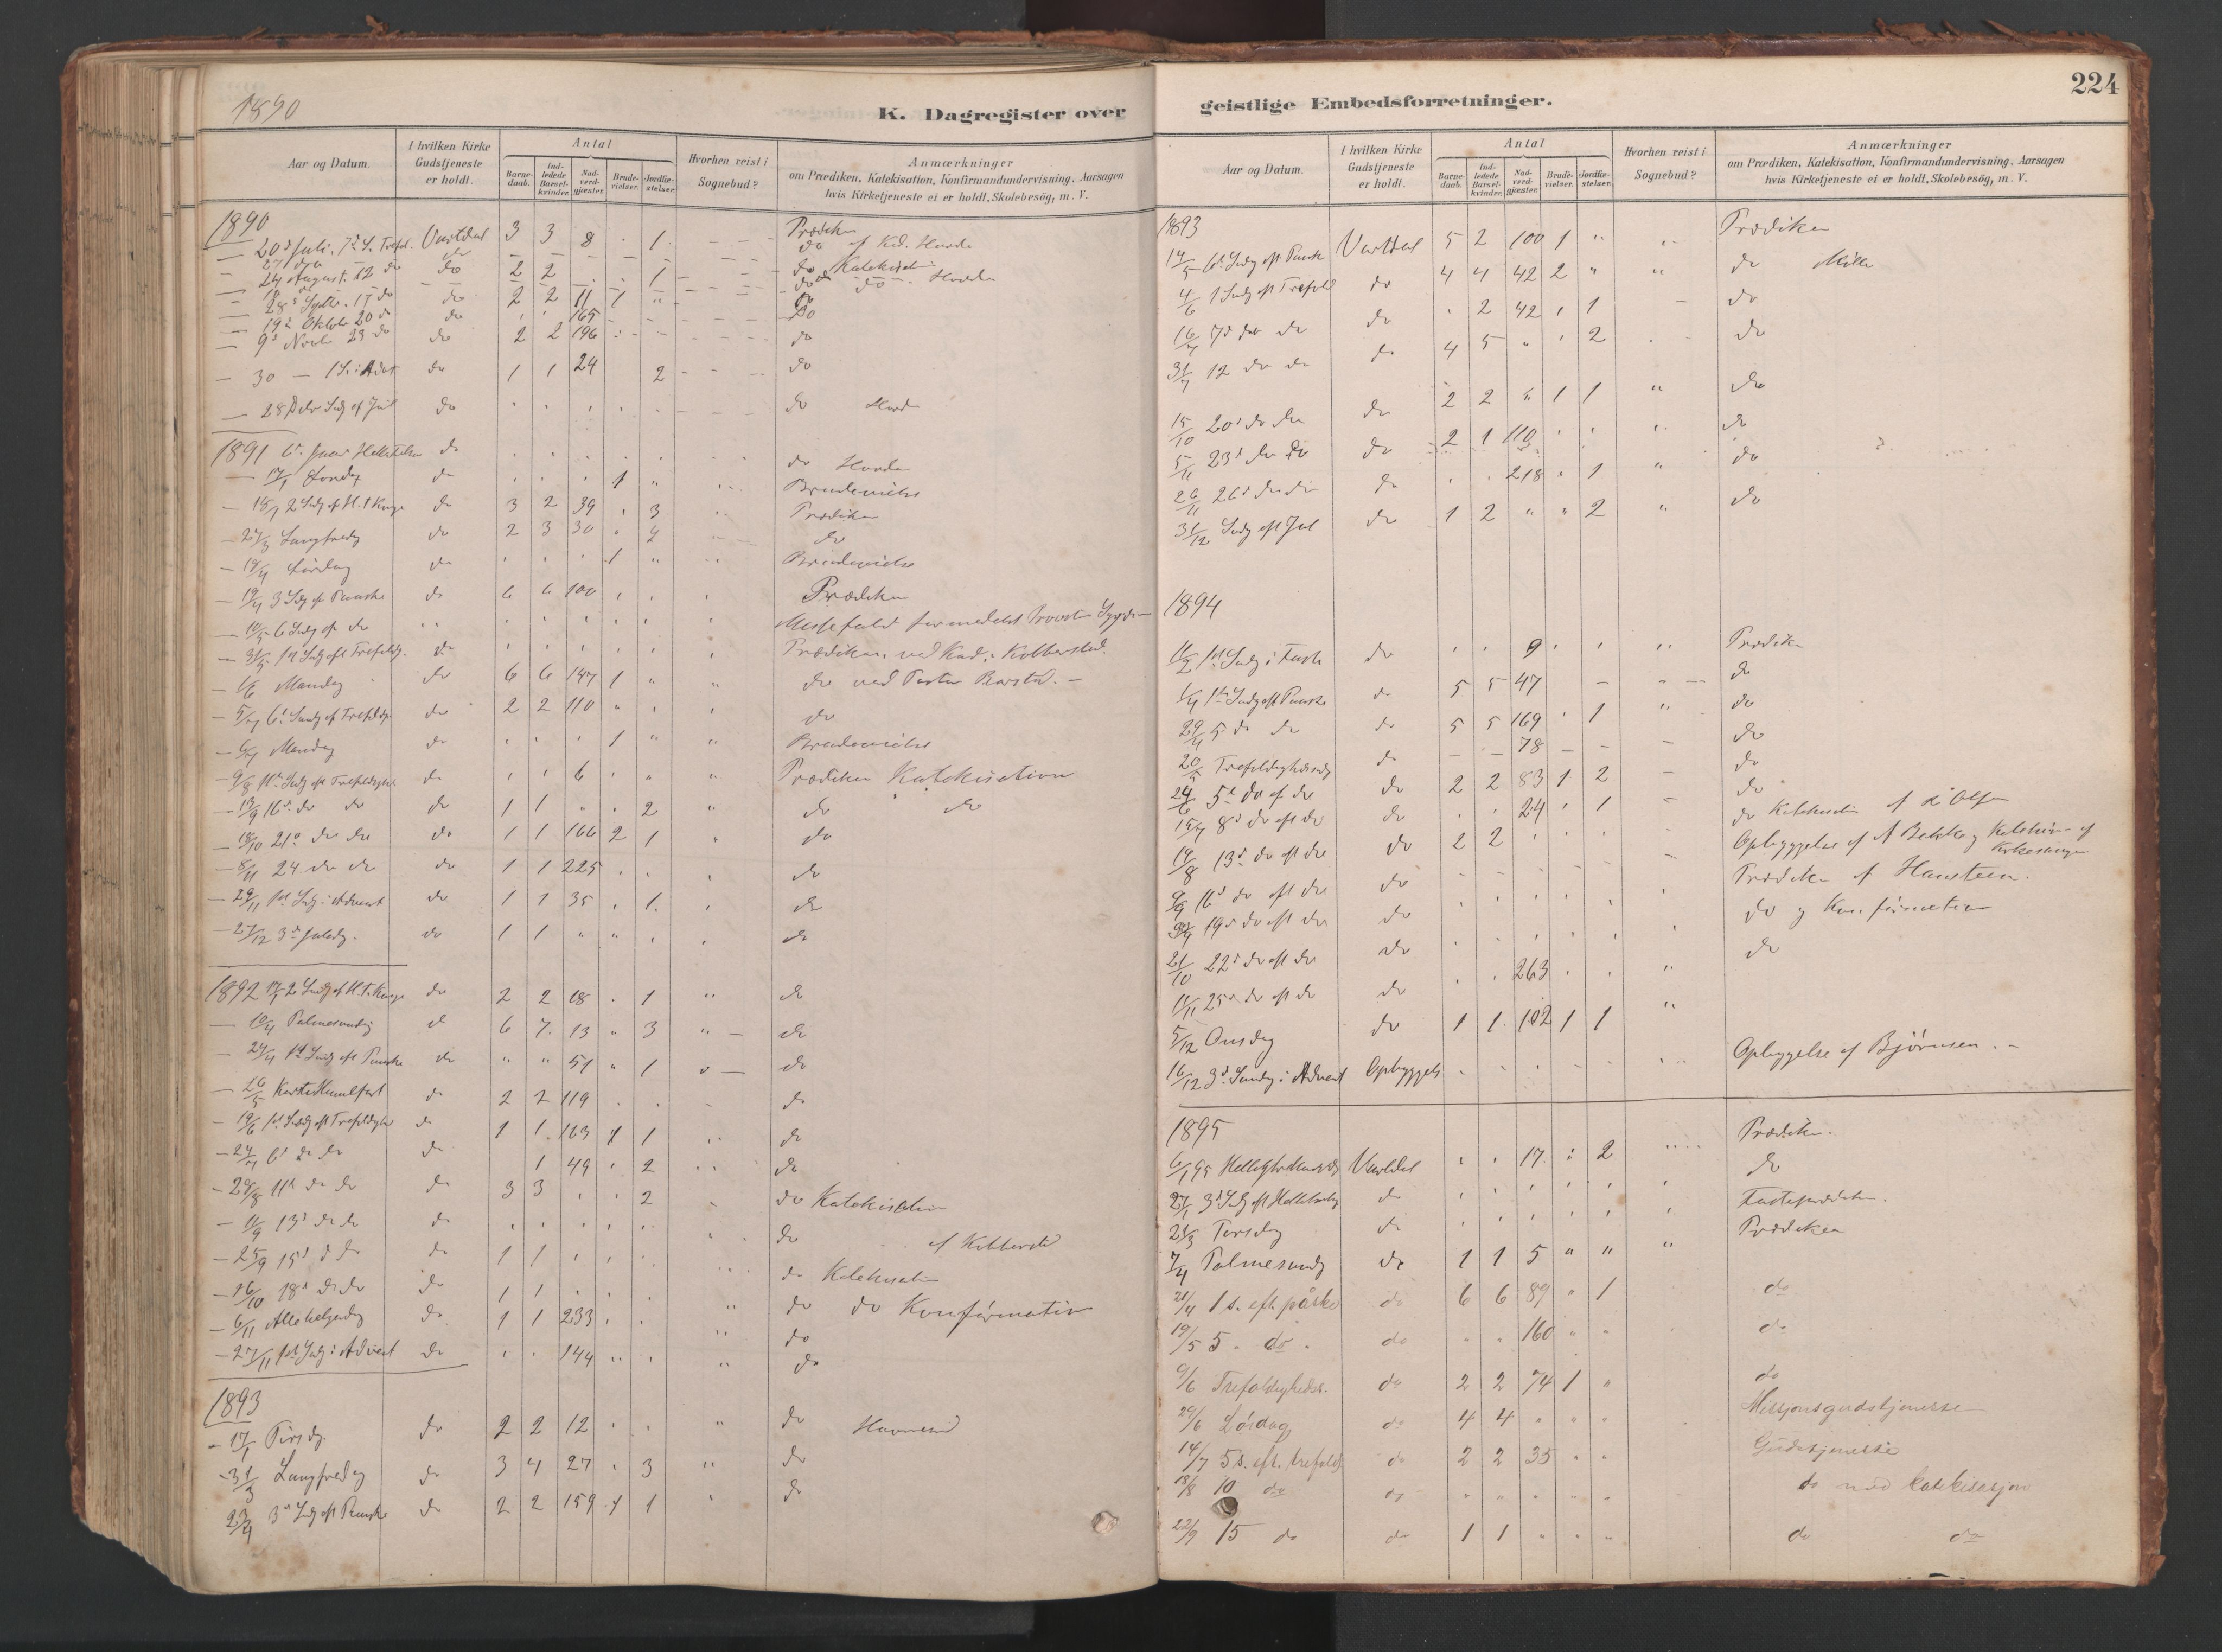 1890
K. Dagregister over
Aar og Datum.
I hvilken Kirke Gudstjeneste er holdt.
Antal
Barnedaab.
Indledede Barselkvinder.
Nadverdgjæster.
Brudevielser.
Jordfæstelser.
Hvorhen reist i Sognebud?
Anmærkninger
om Prædiken, Katekisation, Konfirmandundervisning, Aarsagen
hvis Kirketjeneste ei er holdt, Skolebesög, m. V.
1890
20d Juli. 7d S. Trefol. Vartdal 3 3 8 1 Prædiken
24 August. 12 do do 2 2 1 do Katekisation
28d Septbr. 17 do do 2 2 11 1 do
19d Oktobr 20 do do 165 do
9d Novbr 23 do do 2 2 196 do
30 1 S. i Advt do 1 1 24 2 do
28 Decbr Sdg ef Jul do do
1891 6te Januar do do
17/1 Lørdag do 1 Brudevielse
18/1 2 Sdg ef H. 3 Konge do 3 2 39 3 Prædiken
27/3 Langfredag do 2 3 30 4 do
18/4 Lørdag do 1 Brudevielse
19/4 3 Sdg ef Paaske do 6 6 100 Prædiken
10/5 6 Sdg ef do Messefald formedelst Provstens Sygdom
31/5 1st Sdg eft Trefoldgh. do Prædiken ved Kand. Kobberstad.
1/6 Mandag do 6 6 147 1 do ved Pastor Barstad.
5/7 6d Sdg ef Trefoldgh do 2 2 110 do
6/7 Mandag do 1 Brudevielse
9/8 11te Sdg eft Trefoldighed do 6 Prædiken Katekisation
13/9 16d do do do 1 1 2 do do
18/10 21d do do do 1 1 166 2 1 do
8/11 24 do do do 1 1 225 do
29/11 1st Sdg i Advent do 1 1 35 1 do
27/12 3d Juledg. do 1 1 do
1892 17/1 2 Sdg ef H. 3 Konge do 2 2 18 1 do
10/4 Palmesøndag do 6 7 13 3 do
24/4 1st Sdg eft Paaske do 51 1 do
26/5 Kristi Himmelfart do 2 2 119 do
19/6 1st Sdg eft Trefoldighed do 1 1 163 1 1 do
24/7 6d do do do 1 49 2 do
28/8 11te do do do 3 3 2 do Katekisation
11/9 13d do do do do af Kobberstad
25/9 15d do do do 1 1 do Katekisation
16/10 18d do do do 1 1 do do Konfirmation
6/11 Allehelgendag do 1 1 233 do
27/11 1st Sdg i Advent do 144 do
1893
17/1 Tirsdg. do 2 2 12 do
31/3 Langfredag do 3 4 27 3 do
23/4 3d Sdg eft Paaske do 2 2 159 1 1 do
geistlige Embedsforretninger.
224
Aar og Datum.
I hvilken Kirke Gudstjeneste er holdt.
Antal
Barnedaab.
Indledede Barselkvinder.
Nadverdgjæster.
Brudevielser.
Jordfæstelser.
Hvorhen reist i Sognebud?
Anmærkninger
om Prædiken, Katekisation, Konfirmandundervisning, Aarsagen
hvis Kirketjeneste ei er holdt, Skolebesög, m. V.
1893
14/5 6d Sdg eft Paaske Vartdal 5 2 100 1 " Prædiken
4/6 1 Sdg eft Trefold do 4 4 42 2 " do
16/7 7d do do do 2 42 1 do
31/7 12 do do do 4 5 " 2 do
15/10 20d do do do 2 2 " 1 1 do
5/11 23d do do do 2 1 110 do
26/11 26d do do do 218 1 do
31/12 Sdg eft Jul do 1 2 " " 2 do
1894
11/2 1st Sdg i Faste do 9 Prædiken
1/4 1st Sdg eft Paaske do 5 5 47 do
29/4 5 do do do 5 5 169 1 do
20/5 Trefoldighedssdg do 78 do
24/6 5d do ef do do 2 2 83 1 2 do
15/7 8d do eft do do 24 1 do
19/8 13d do eft do do 2 2 do Katekisation af Olsen
9/9 16d do eft do do Opbyggelse af A Bakke og Katekis- af Kirkesanger
30/9 19d do eft do do Prædiken af Hansteen.
21/10 22d do eft do do do og Konfirmation
11/11 25d do eft do do 263 do
5/12 Onsdag do 1 1 102 1 1
16/12 3d Søndg i Advent Opbyggels Opbyggelse af Bjørnsen.
1895
6/1 95 Vartdal 17 2 Prædiken.
27/1 3d Sdg eft do do
21/3 Torsdag do Fasteprædiken.
7/4 Palmesøndg do 1 1 5 " " Prædiken
21/4 1 s. eft. påske do 6 6 89 " 1 do
19/5 5 do do 160 do
9/6 Trefoldigheds. do 2 2 74 1 " do
29/6 Lørdag do 4 4 Missjonsgudstjeneste
14/7 5 s. eft. trefold do 2 2 35 Gudstjeneste
18/8 10 do do do med katekisasjon
22/9 15 do do 1 1 do do